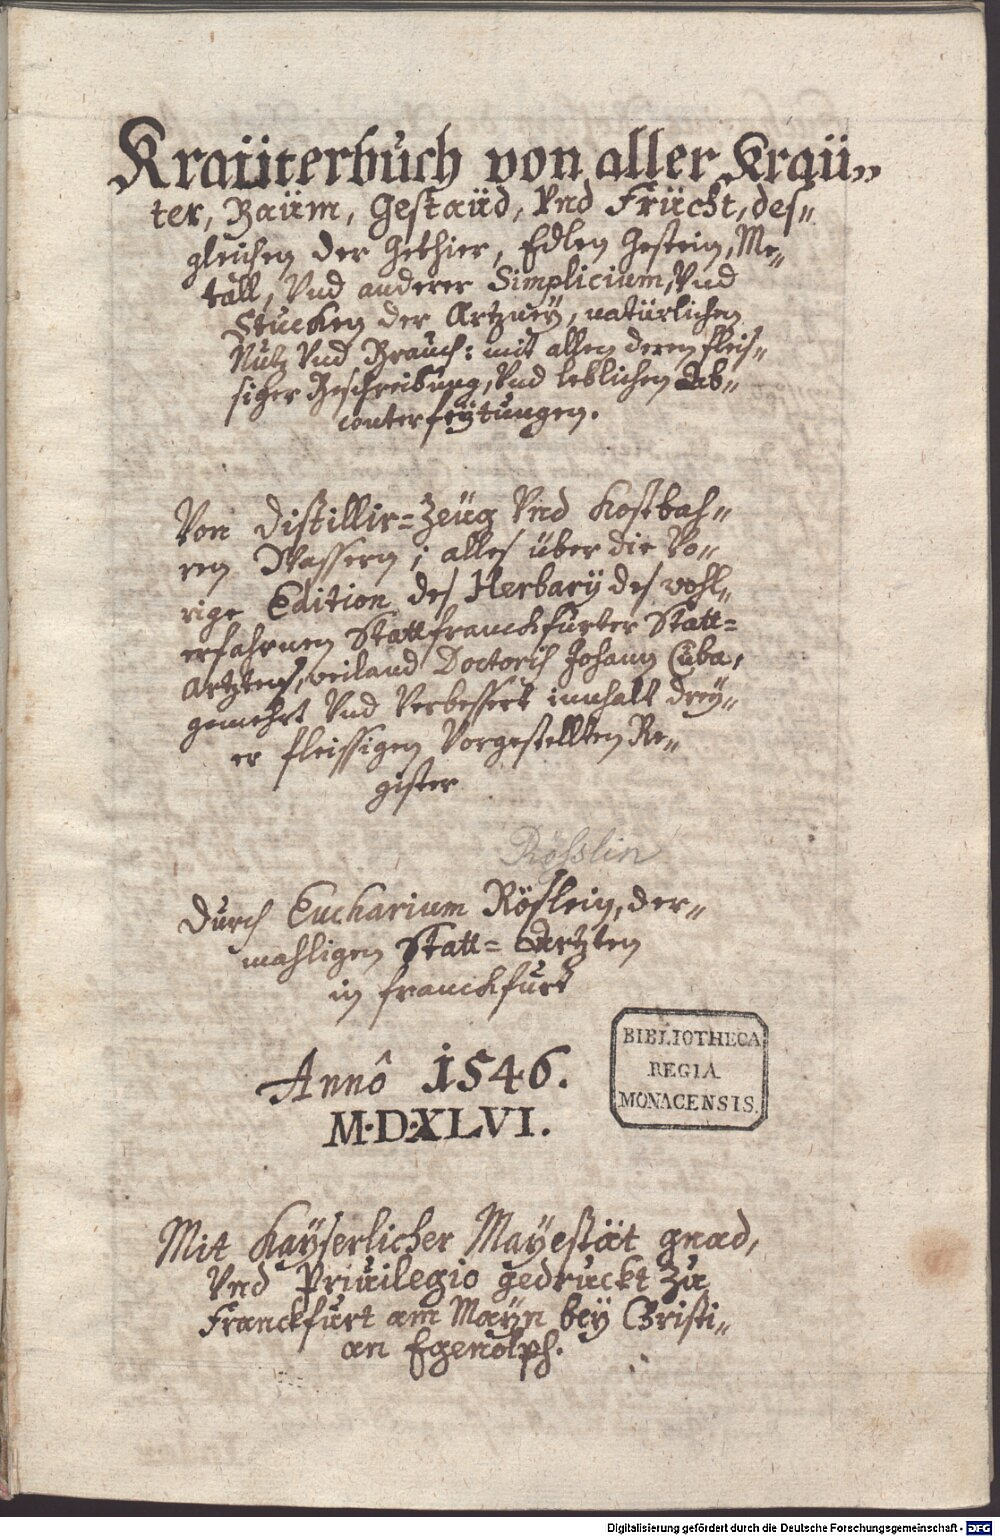 Kraüterbuch von aller Kraü„
ter, Baüm, Gestaüd, Vnd Frücht, des„
gleichen der Gethier, Edlen Gestein, Me„
tall, Vnd anderer Simplicium, Vnd
Stucken der Artzney, natürlichen
Nutz Vnd Brauch: mit allen deren fleis„
siger Beschreibung, Vnd leblichen Ab„
conterfeÿtungen.
Von Distillir=Zeüg Vnd Kostbah„
ren Wassern; alles über die Vo„
rige Edition des Herbarÿ des wohl„
erfahrnen Statt franckfurter Statt=
Artztens, weiland Doctoris Johann Cuba,
gemehrt Vnd Verbessert innhalt drey„
er fleissigen Vorgestellten Re„
gister
Rösslin
Durch Eucharium Röslein, der„
mahligen Statt= Artzten
in franckfurt
Annô 1546.
M·D·XLVI.
BIBLIOTHECA
REGIA
MONACENSIS.
Mit Kaÿserlicher Mayestät gnad,
Vnd Priuilegio gedruckt zu
Franckfurt am Maÿn beÿ Christi„
an Egenolph.
Digitalisierung gefördert durch die Deutsche Forschungsgemeinschaft - DFG